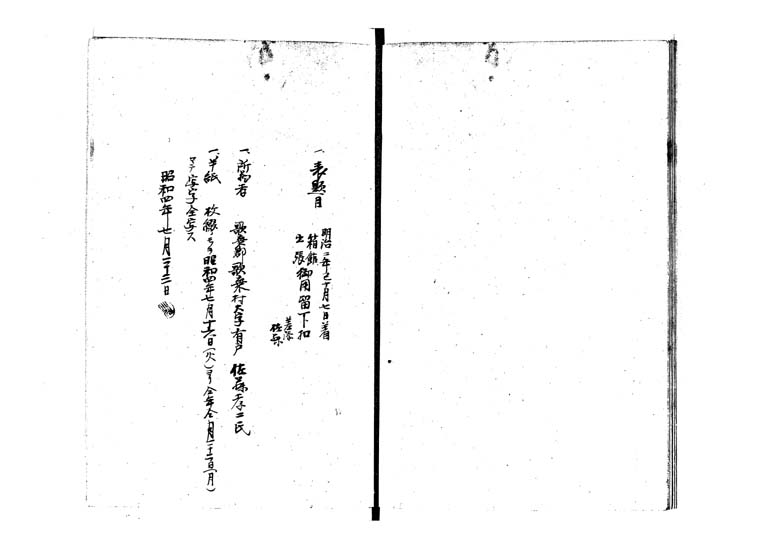 一、表題目
明治二年巳十月七日着
箱館
出張御用留下扣
差添
佐藤
一、所有者 歌棄郡歌棄村大字有戸 佐藤孝二氏
一、半紙 枚綴 昭和四年七月十六日(火)ヨリ仝年仝月二十二日(月)
マデ 写字全写ス
昭和四年七月二十三日